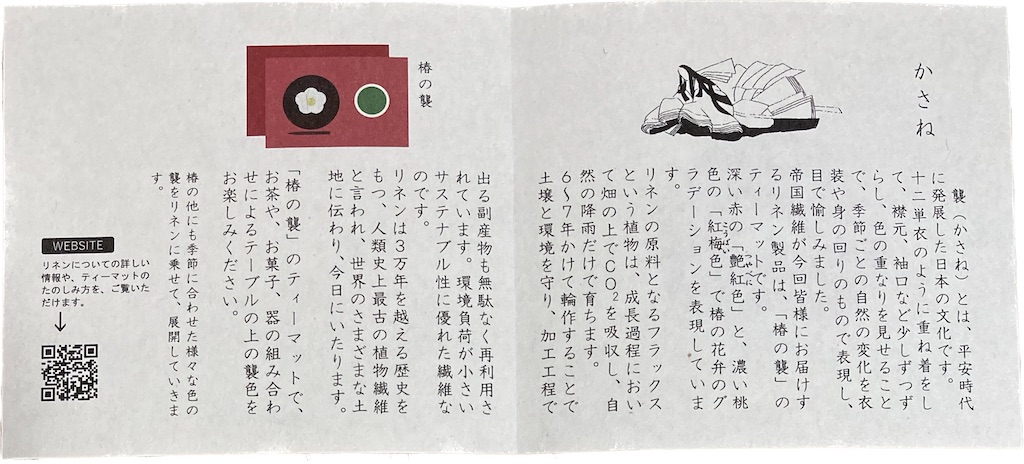 かさね
襲（かさね）とは、平安時代
に発展した日本の文化です。
十二単衣のように重ね着をし
て、襟元、袖口など少しずつず
らし、色の重なりを見せること
で、季節ごとの自然の変化を衣
装や身の回りのもので表現し、
目で愉しみました。
帝国繊維が今回皆様にお届けす
るリネン製品は、「椿の襲」の
ティーマットです。
深い赤の「艶紅色」と、濃い桃
つやべに
色の「紅梅色」で椿の花弁のグ
こうばい
ラデーションを表現していま
す。
リネンの原料となるフラックス
という植物は、成長過程におい
て畑の上でCO2を吸収し、自
然の降雨だけで育ちます。
6〜7年かけて輪作することで
土壌と環境を守り、加工工程で
椿の襲
出る副産物も無駄なく再利用さ
れています。環境負荷が小さい
サステナブル性に優れた繊維な
のです。
リネンは3万年を越える歴史を
もつ、人類史上最古の植物繊維
と言われ、世界のさまざまな土
地に伝わり、今日にいたります。
「椿の襲」のティーマットで、
お茶や、お菓子、器の組み合わ
せによるテーブルの上の襲色を
お楽しみください。
椿の他にも季節に合わせた様々な色の
襲をリネンに乗せて、展開していきま
す。
WEBSITE
リネンについての詳しい
情報や、ティーマットの
たのしみ方を、ご覧いた
だけます。